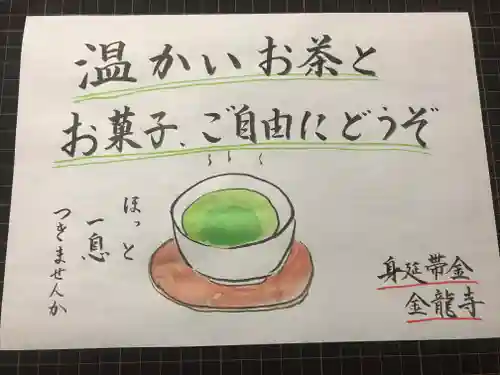 温かいお茶と
お菓子、ご自由にどうぞ
ほっと
一息
つきませんか
身延帯金
金龍寺